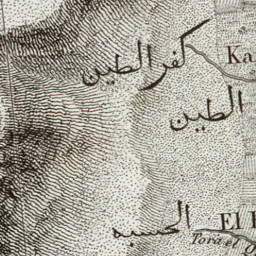 كفر الطين
Ka
الطين
الحسبه
El
Tora el